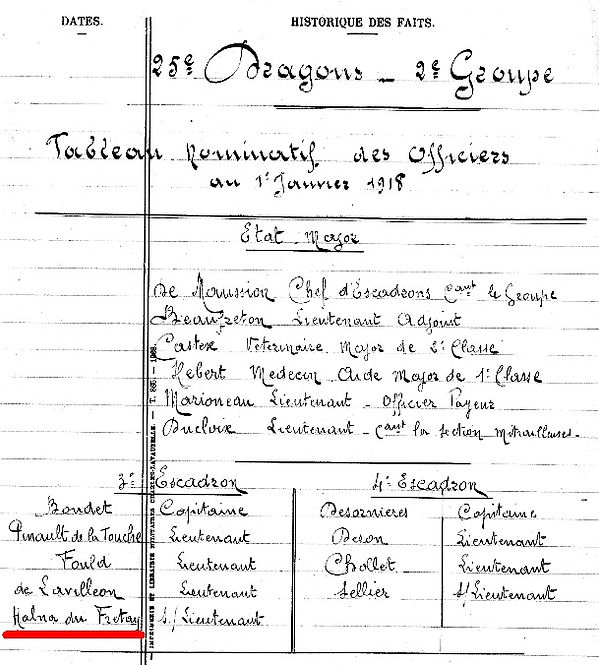 DATES.
HISTORIQUE DES FAITS.
25e Dragons - 2e Groupe
Tableau Nominatif des Officiers
au 1r Janvier 1918
Etat Major
De Maussion Chef d'Escadrons Cant le Groupe
Beaufreton Lieutenant Adjoint
Castex Veterinaire Major de 2e Classe
Hebert Medecin Aide Major de 1e Classe
Marioneau Lieutenant - Officier Payeur
Ducloix Lieutenant - Cant la section Mitrailleuses.
3e Escadron
Boudet Capitaine
Pinault de la Touche Lieutenant
Fould Lieutenant
de Lavilleon Lieutenant
Halna du Fretay s/Lieutenant
4e Escadron
Desornieres Capitaine
Beson Lieutenant
Chollet Lieutenant
Sellier s/Lieutenant
IMPRIMERIE ET LIBRAIRIE MILITAIRES CHARLES-LAVAUZELLE. — T. 885. — 1909.